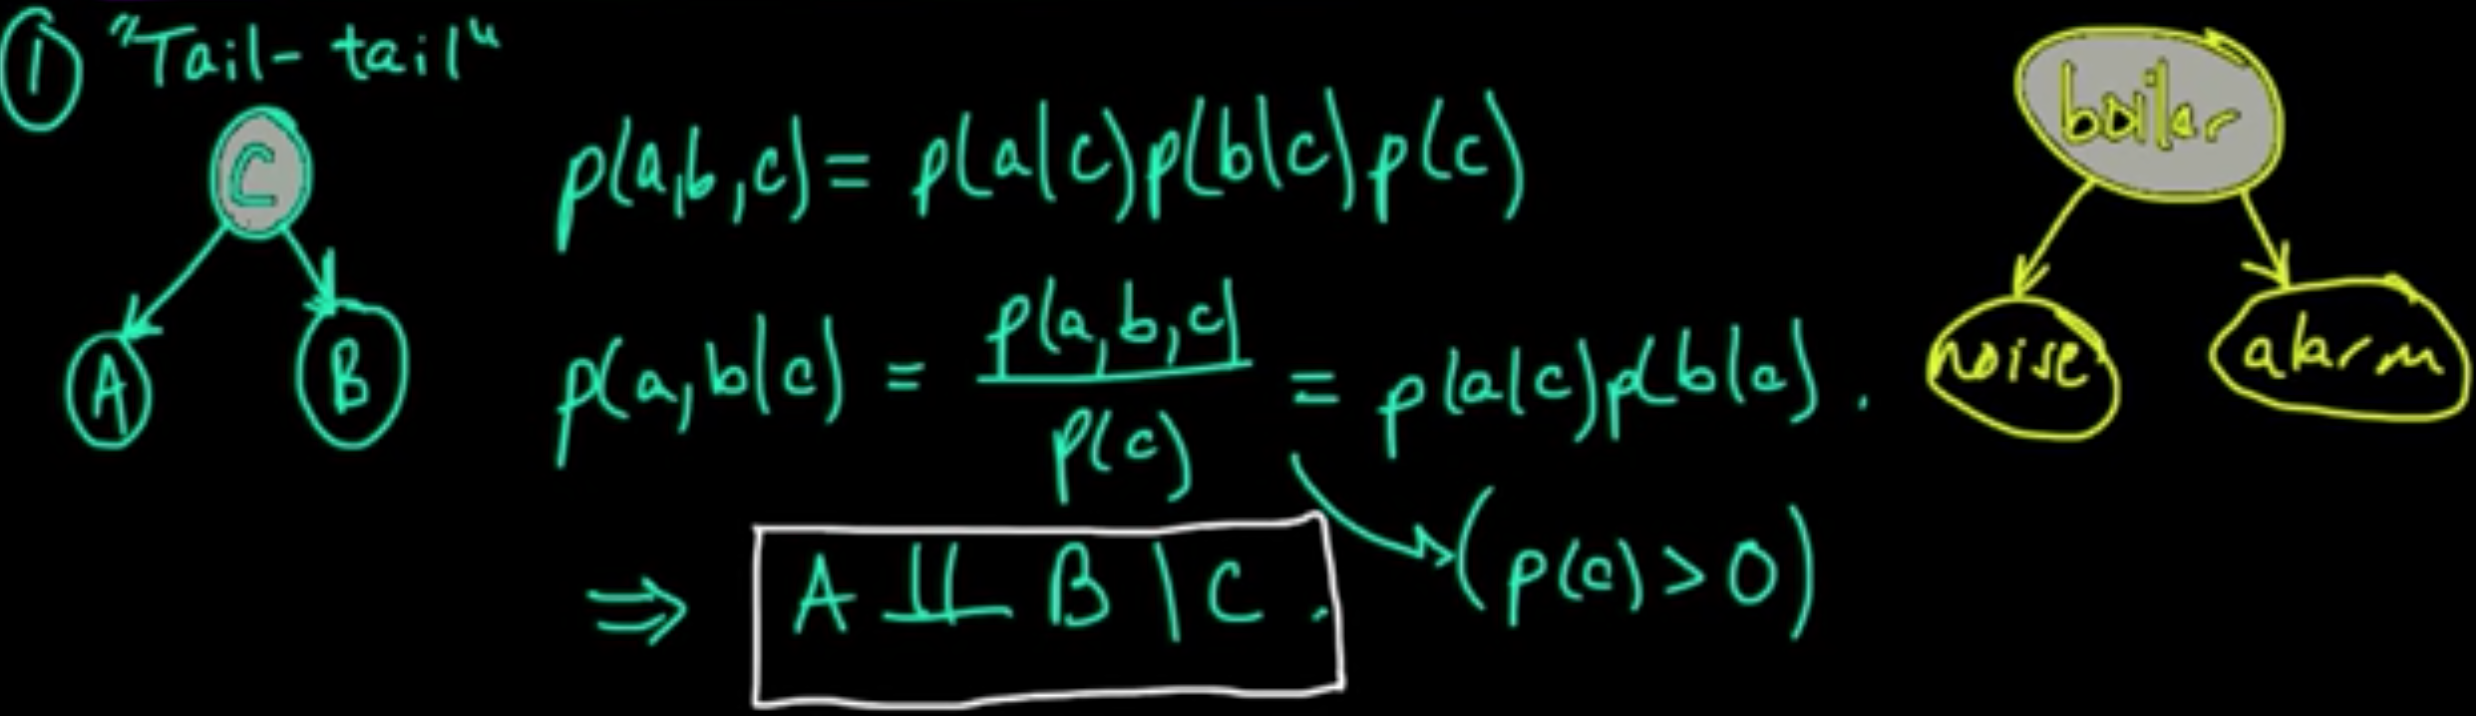 ① "Tail-tail"
C
A
B
p(a,b,c) = p(a|c)p(b|c)p(c)
p(a,b|c) = p(a,b,c) / p(c) = p(a|c)p(b|c).
(p(c) > 0)
⇒ A ⫫ B | C.
boiler
noise
alarm